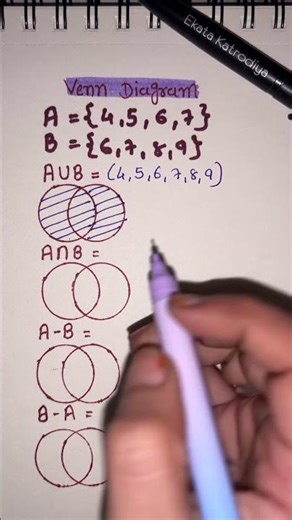 Ekata Katrodiya
Venn Diagram
A = {4,5,6,7}
B = {6,7,8,9}
AUB = (4,5,6,7,8,9)
A∩B =
A-B =
B-A =